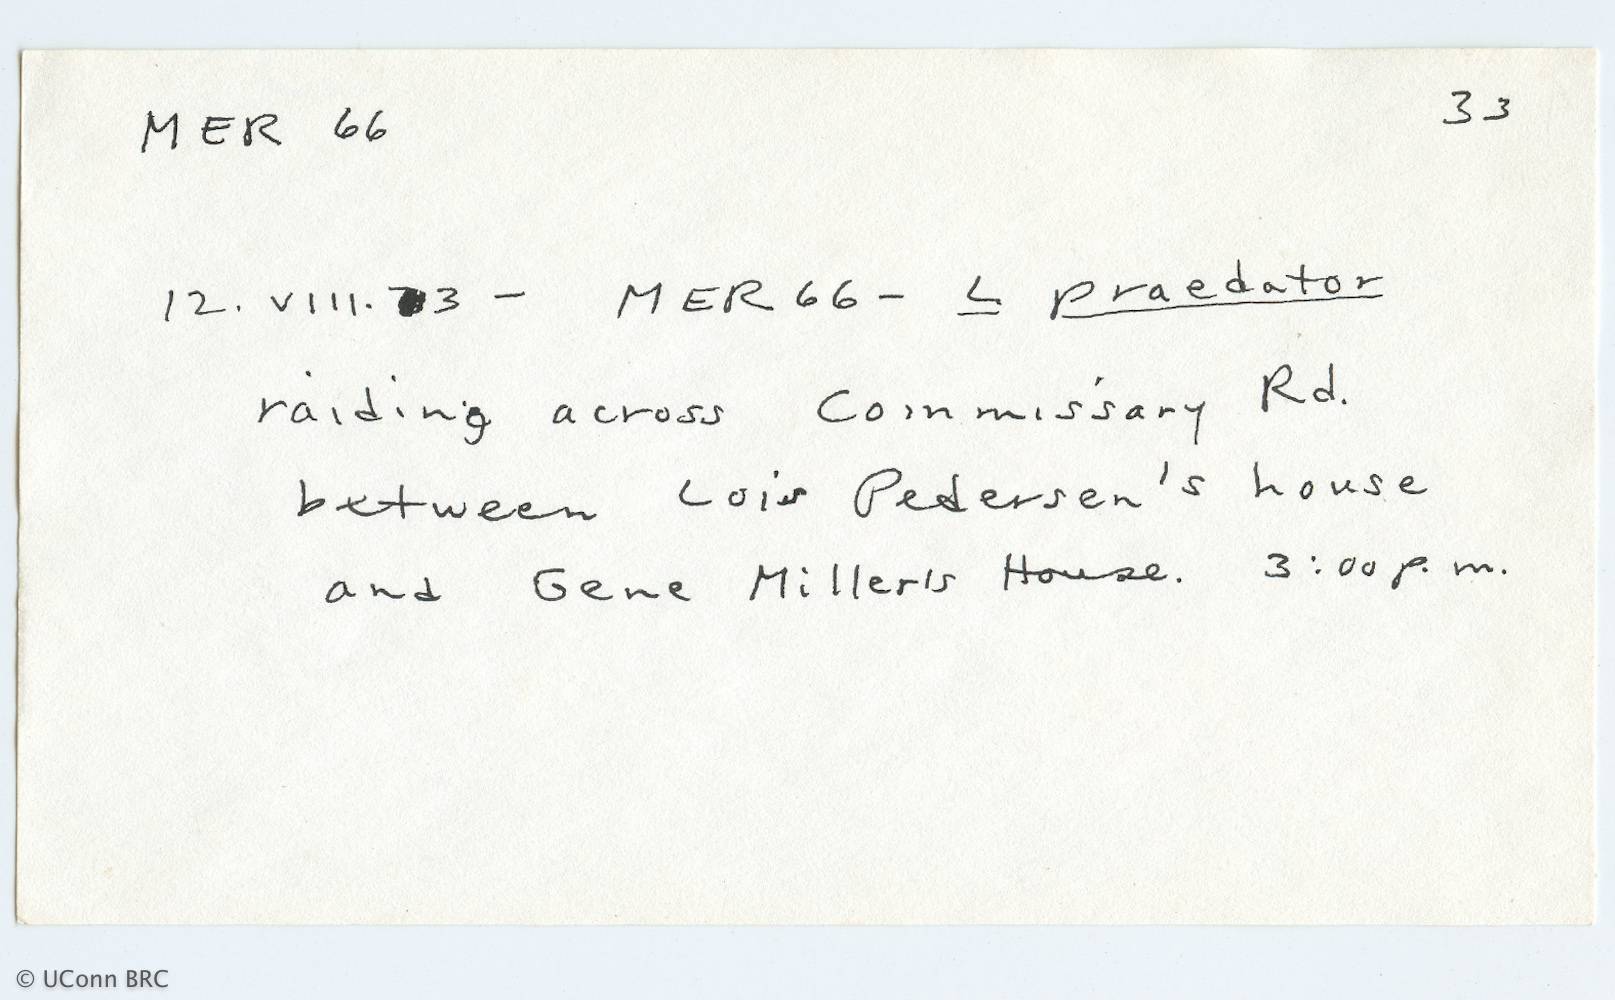 MER 66
33
12. VIII. 73 - MER 66 - L praedator
raiding across Commissary Rd.
between Lois Pedersen's house
and Gene Miller's House. 3:00 p.m.
© UConn BRC